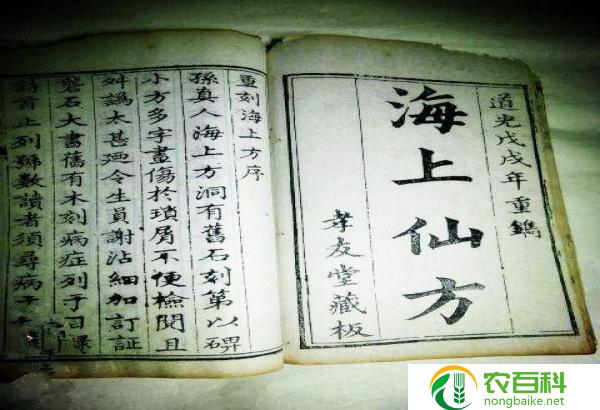 道光戊戌年重鐫
海上仙方
孝友堂藏板
重刻海上方序
孫真人海上方洞有舊石刻第以碑
小方多字畫傷於瑣屑不便檢閱且
舛譌太甚廼令生員謝沾細加訂証
礱石大書舊有木刻病症列于目
詩首止列號數讀者須尋病
农百科
nongbaike.net